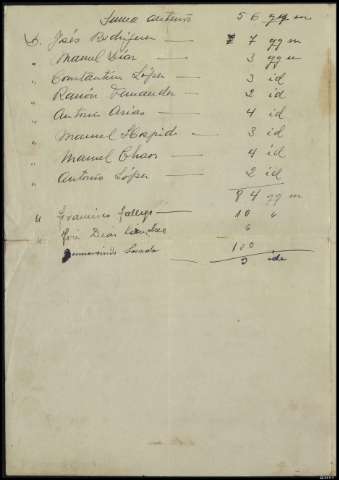 Suma anterior 56 qq m
D. José Rodriguez — 7 qq m
" Manuel Diaz — 3 qq m
" Constantino López — 3 id
" Ramón Fernandez — 2 id
" Antonio Arias — 4 id
" Manuel — 3 id
" Manuel Chaos — 4 id
" Antonio López — 2 id
84 qq m
" Francisco Gallego — 10 "
" José Dias 6
100
— 3 ide